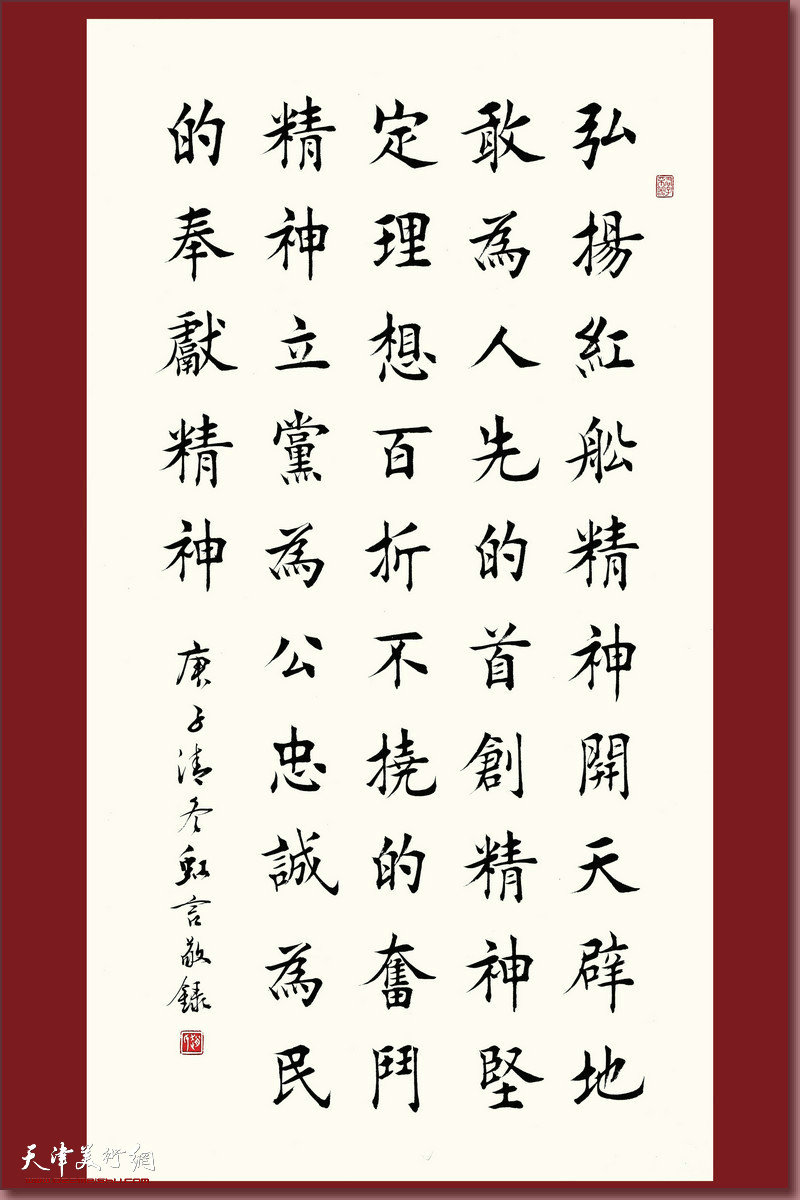 弘揚紅船精神開天辟地
敢為人先的首創精神堅
定理想百折不撓的奮鬥
精神立黨為公忠誠為民
的奉獻精神
庚子清冬虹言敬録
天津美術網